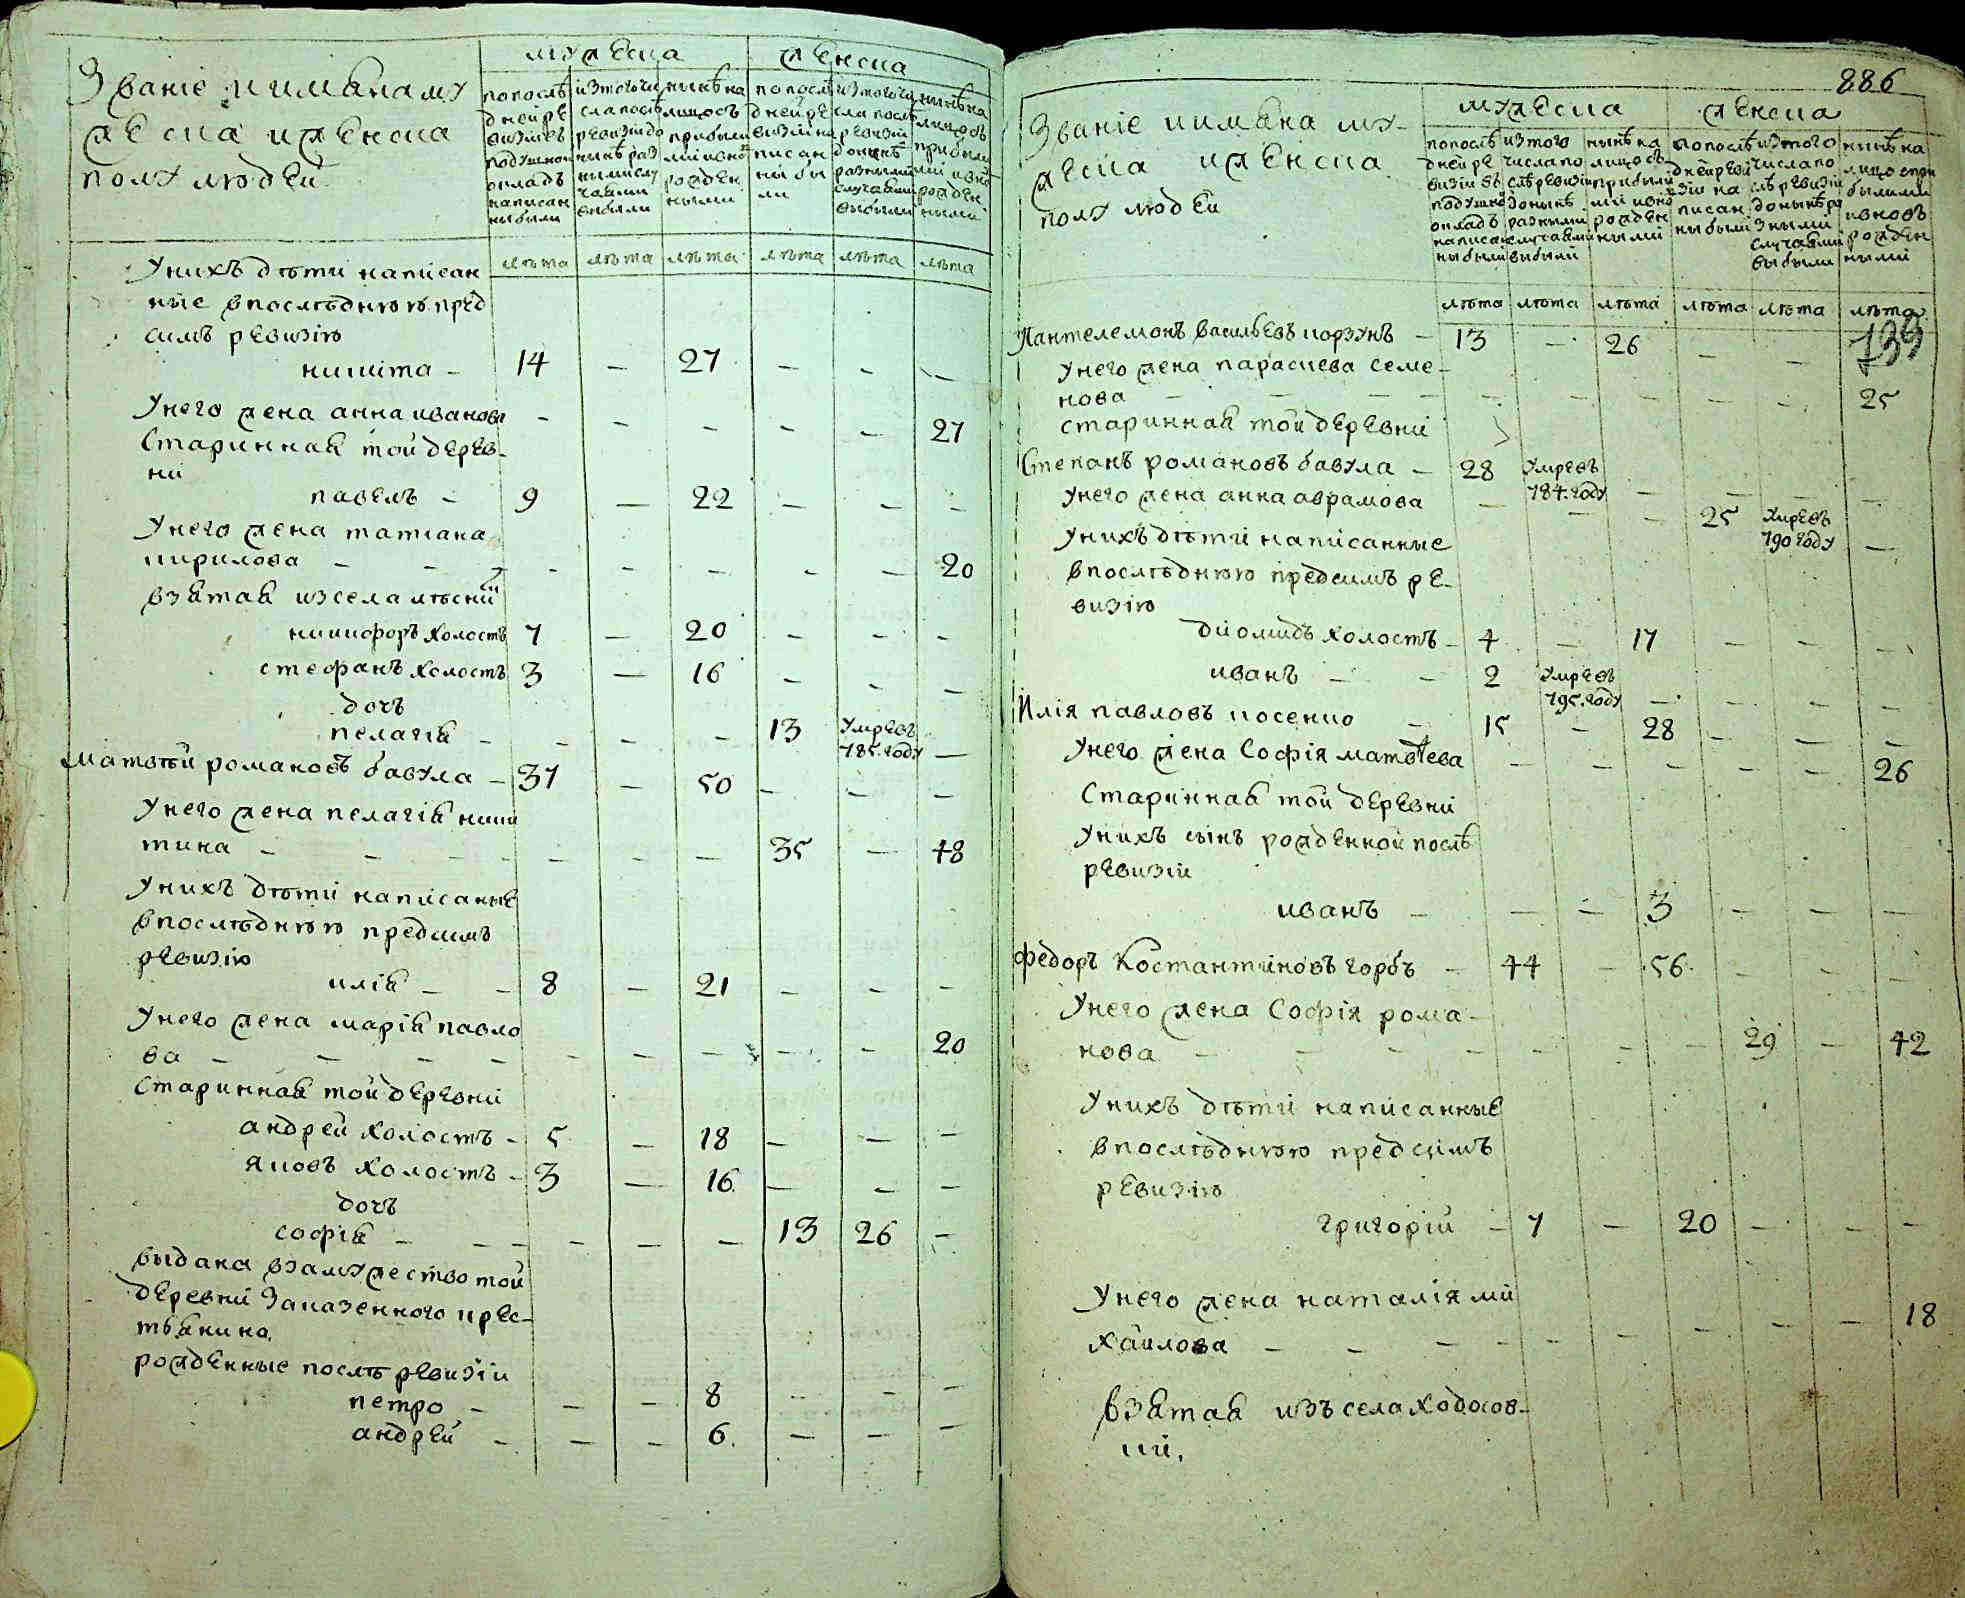 Званіе иимѣнаму
жеска иженска
полу людей
мужеска
женска
попослѣ
дней ре
визіи въ
подушной
окладъ
написан
ны были
изтогочи
сла послѣ
ревизіи до
нынѣ раз
ними слу
чаями
выбыли
нынѣ на
лицо съ
прибылы
ми ивно
рожден
ными
попослѣ
дней ре
визіи на
писан
ны бы
ли
изтогочи
сла послѣ
ревизіи
донынѣ
разными
случаями
выбыли
нынѣ на
лицо съ
прибылы
ми ивно
рожден
ными
лѣта лѣта лѣта лѣта лѣта лѣта
Унихъ дѣти написан
ные впослѣднюю пред
симъ ревизію
никита - 14 - 27 - - -
Унего жена анна иванова - - - - - 27
Старинная той дерев-
ни
павелъ - 9 - 22 - - -
Унего жена татіана
кирилова - - - - - - - 20
взятая изсела лѣски
никифоръ холостъ 7 - 20 - - -
стефанъ холостъ 3 - 16 - - -
дочъ
пелагія - - - - 13 Умре въ
785. году -
матвѣй романовъ бавула - 37 - 50 - - -
Унего жена пелагія ники
тина - - - - - - - 35 - 48
Унихъ дѣти написаные
впослѣднюю предсимъ
ревизію
илія - - 8 - 21 - - -
Унего жена марія павло
ва - - - - - - - - - 20
Старинная той деревни
андрей холостъ - 5 - 18 - - -
яковъ холостъ - 3 - 16 - - -
дочъ
софія - - - - - - 13 26 -
выдана взамужество той
деревни заказенного крес-
тьянина
рожденные послѣ ревизіи
петро - - - 8 - - -
андрей - - - 6. - - -
886
Званіе иимѣна му-
жеска иженска
полу людей
мужеска
женска
попослѣ
дней ре
визіи въ
подушно
окладъ
написа
ны были
изтого
числа по
слѣ ревизіи
донынѣ
разными
случаями
выбыли
нынѣ на
лицо съ
прибылы
ми ивно
рожден
ными
попослѣ
дней реви
зіи на
писан
ны были
изтого
числа по
слѣ ревизіи
донынѣ ра
зными
случаями
выбыли
нынѣ на
лицо спри
былыми
ивновъ
рожден
ными
лѣта лѣта лѣта лѣта лѣта лѣта
139
Пантелемонъ васильевъ корзунъ - 13 - 26 - -
Унего жена параскева семе-
нова - - - - - - - - - 25
старинная той деревни
Степанъ романовъ бавула - 28 Умре въ
784. году - - - -
Унего жена анна аврамова - - - 25 Умре въ
790 году -
Унихъ дѣти написанные
впослѣднюю предсимъ ре-
визію
діомидъ холостъ - 4 - 17 - - -
иванъ - - 2 Умре въ
795. году - - - -
Илія павловъ косенко - 15 - 28 - - -
Унего жена Софія матвѣева - - - - - 26
Старинная той деревни
Унихъ сынъ рожденной послѣ
ревизіи
иванъ - - - 3 - - -
Федоръ Костантиновъ горбъ - 44 - 56 - - -
Унего жена Софія рома-
нова - - - - - - - 29 - 42
Унихъ дѣти написанные
впослѣднюю предсимъ
ревизію
григорій - 7 - 20 - - -
Унего жена наталія ми
хайлова - - - - - - - - 18
взятая изъ села ходосов-
ки.